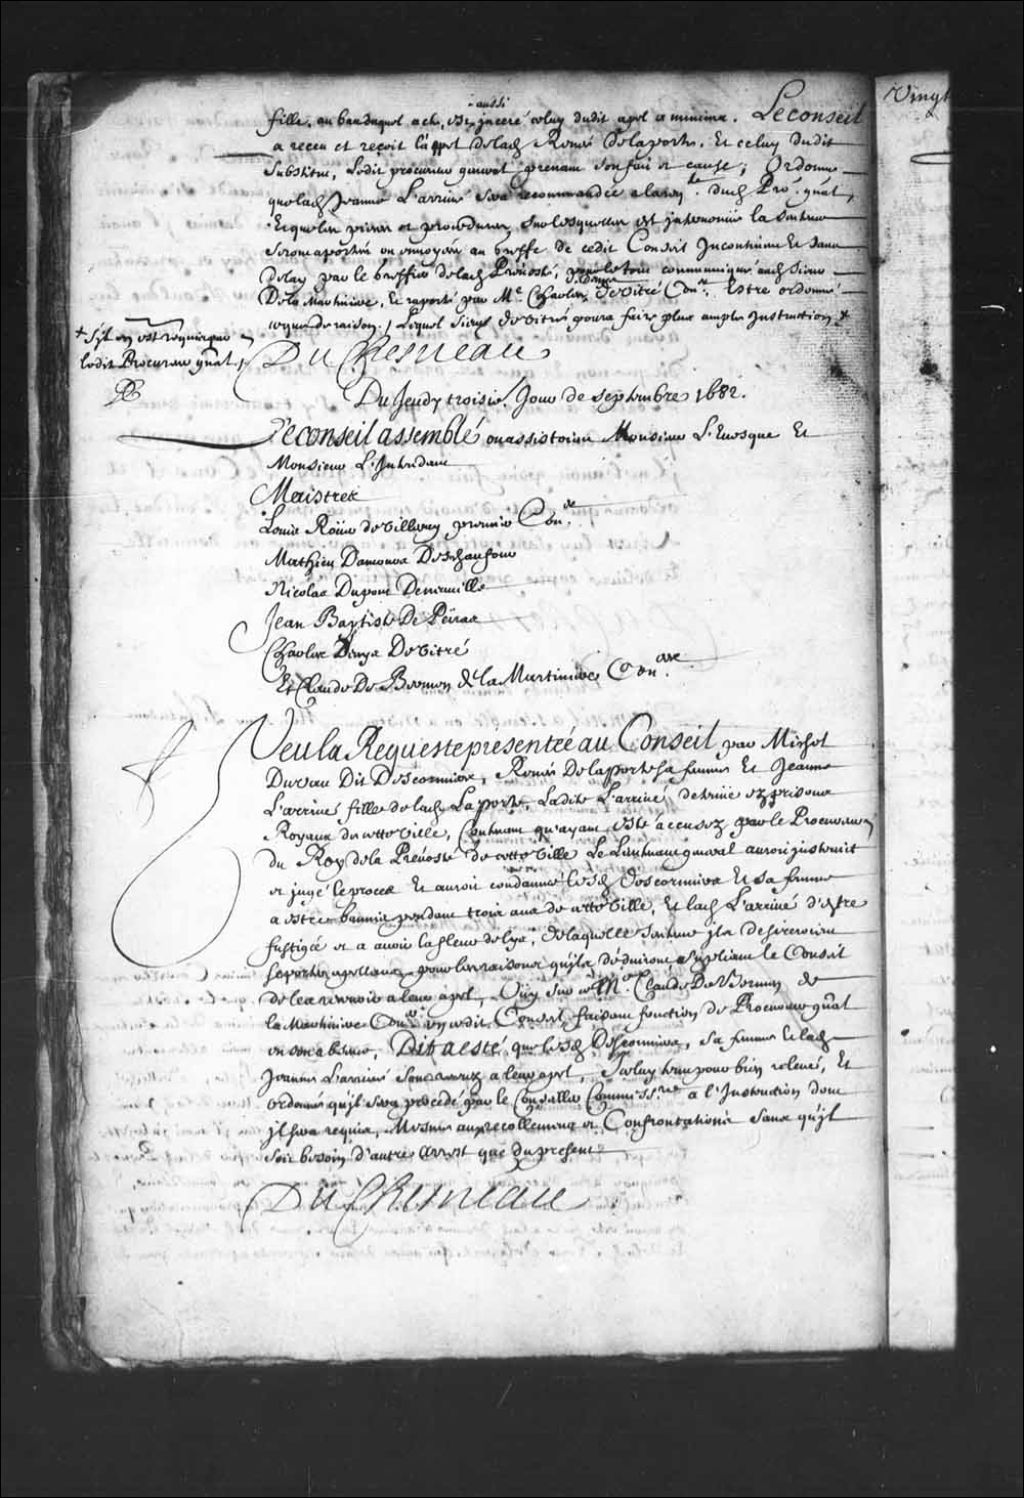 aussi
fille, au bas duquel acte, est inceré celuy dudit apel a minima. Le conseil
a receu et reçoit l'appel de lad. Renée Delaporte, Et celuy dudit
Substitut, Ledit procureur general prenant son fait et cause; Ordonne
que lad. Jeanne L'arrivé sera recommandée a la req.te dud. Pro. gnâl,
Et que les pieces et procedures, sur lesquelles est intervenüe la sentence
seront aportées ou envoyées au Greffe de cedit Conseil Incontinent Et sans
delay par le Greffier de lad. Prévosté, pour le tout communiqué aud. sieur
De la Martiniere, Et raporté par M.e Charles Denys De Vitré Con.er Estre ordonné
ce que de raison / Lequel sieur de Vitré poura faire plus ample Instruction +
+ Syl en est requis par
ledit Procureur gnâl. /
Du Chesneau
Du Jeudy troisie. Jour de septembre 1682.
Le conseil assemblé ou assistoient Monsieur L'Evesque Et
Monsieur L'Intendant
Maistres
Louis Roüer de Villeray premier Con.er
Mathieu Damours Deschaufour
Nicolas Dupont De neuville
Jean Baptiste De Peiras
Charles Denys De Vitré
Et Claude De Bermen de la Martiniere Con.ers
Veu la Requeste presentée au Conseil par Michel
Dureau Dit Descormiers, Renée Delaporte sa femme Et Jeanne
L'arrivé fille de lad. Laporte, Ladite L'arrivé detenüe ez prisons
Royaux de cette ville, Contenant qu'ayant esté accusez par le Procureur
du Roy de la Prévosté de cette ville Le Lieutenant general auroit instruit
et jugé le procez Et auroit condamné lesd. Descormiers Et sa femme
a estre bannis pendant trois ans de cette Ville, Et lad. L'arrivé d'estre
fustigée et a avoir la fleur de lys, de laquelle sentence ils desireroient
se porter apellans pour les raisons qu'ils déduiront supliant le Conseil
de les recevoir a leur apel, Oüy sur ce M.e Claude De Bermen de
la Martiniere Con.er en cedit Conseil faisant fonction de Procureur gnâl
en son absence, Dit a esté que lesd. Descormiers, sa femme et lad.
Jeanne L'arrivé sont receus a leur apel, Iceluy tenu pour bien relevé, Et
ordonné qu'il sera procedé par le Conseiller Commiss.re a l'Instruction dont
il sera requis, Mesme aux recollemens et Confrontations sans qu'il
soit besoin d'autre arrest que du present
Du Chesneau
Vingt